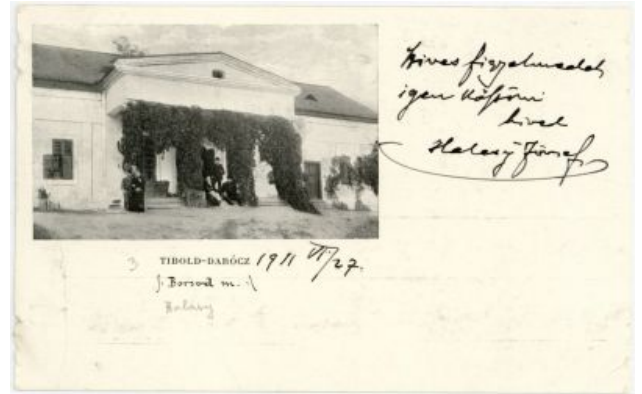 Szives figyelmedet
igen köszöni
hived
Halasy József
TIBOLD-DARÓCZ 1911 VI/27.
/: Borsod m. :/
Halasy
3